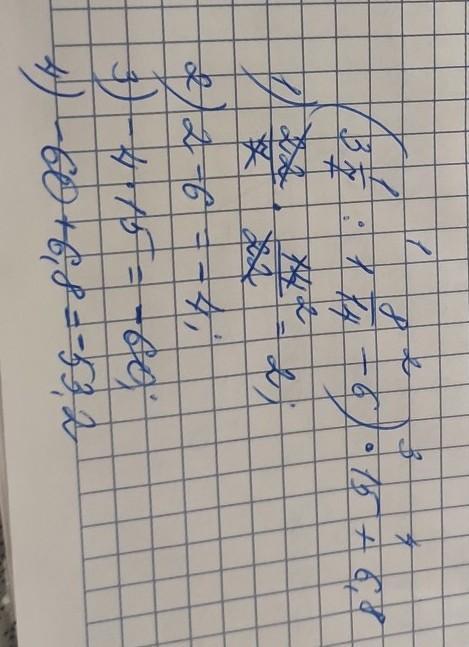 1 2 3 4
(3 1/7 : 1 8/14 - 6) · 15 + 6,8
1) 22/7 · 14 2/22 = 2;
2) 2 - 6 = -4;
3) -4 · 15 = -60;
4) -60 + 6,8 = -53,2